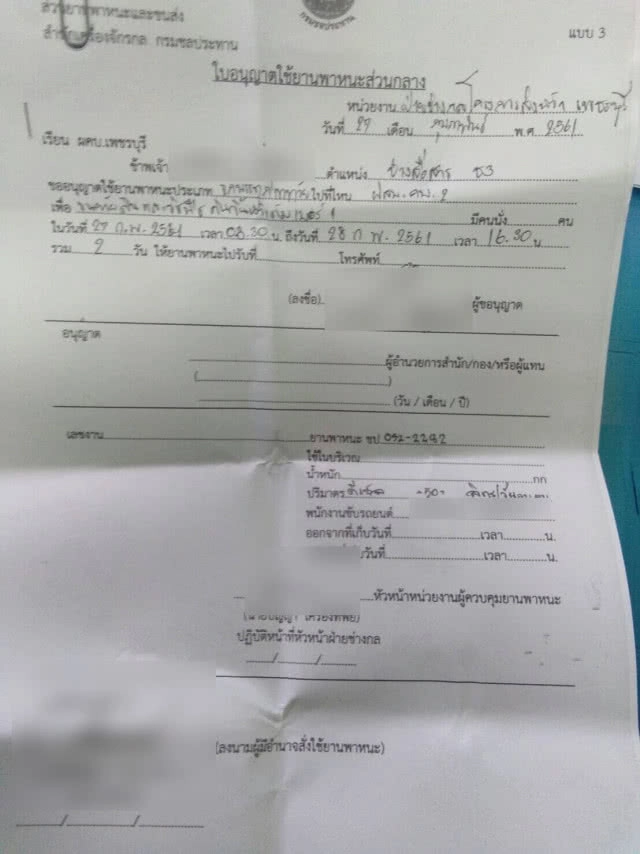 ส่วนยานพาหนะและขนส่ง
สำนักเครื่องจักรกล กรมชลประทาน
กรมชลประทาน
แบบ 3
ใบอนุญาตใช้ยานพาหนะส่วนกลาง
หน่วยงาน ฝ่ายช่างกล โครงการ เพชรบุรี
วันที่ 27 เดือน กุมภาพันธ์ พ.ศ. 2561
เรียน ผคบ.เพชรบุรี
ข้าพเจ้า ตำแหน่ง ช่างสื่อสาร ช3
ขออนุญาตใช้ยานพาหนะประเภท ไปที่ไหน
เพื่อ มีคนนั่ง คน
ในวันที่ 27 ก.พ. 2561 เวลา 08.30 น. ถึงวันที่ 28 ก.พ. 2561 เวลา 16.30 น.
รวม 2 วัน ให้ยานพาหนะไปรับที่ โทรศัพท์
(ลงชื่อ) ผู้ขออนุญาต
อนุญาต
ผู้อำนวยการสำนัก/กอง/หรือผู้แทน
( )
(วัน / เดือน / ปี)
เลขงาน ยานพาหนะ ชป 052-2292
ใช้ในบริเวณ
น้ำหนัก กก
ปริมาตร ดีเซล -50-
พนักงานขับรถยนต์
ออกจากที่เก็บวันที่ เวลา น.
วันที่ เวลา น.
หัวหน้าหน่วยงานผู้ควบคุมยานพาหนะ
ปฏิบัติหน้าที่หัวหน้าฝ่ายช่างกล
/ /
(ลงนามผู้มีอำนาจสั่งใช้ยานพาหนะ)
/ /